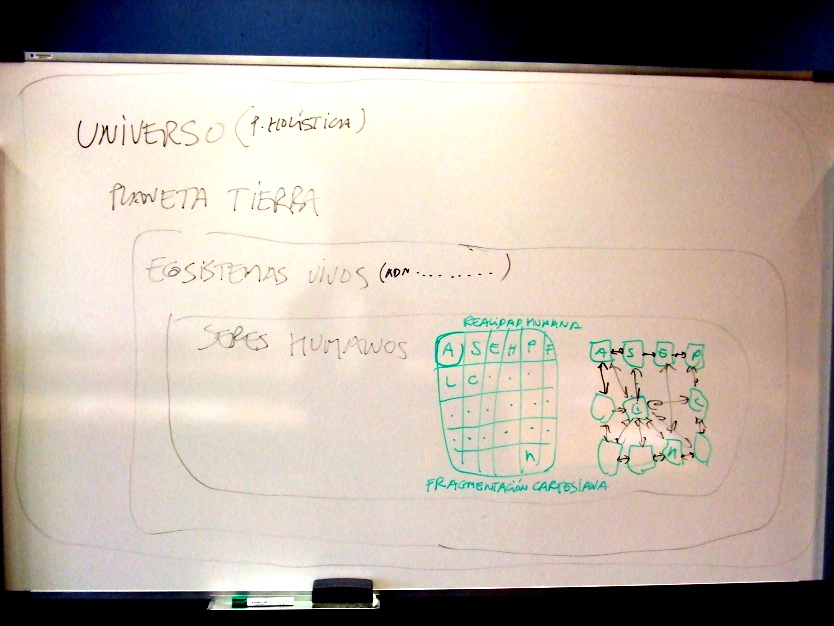 UNIVERSO (P. HOLÍSTICA)
PLANETA TIERRA
ECOSISTEMAS VIVOS (ADN .........)
SERES HUMANOS
REALIDAD HUMANA
A S E H P F
L C . . .
. . . . .
. . . . .
n
FRAGMENTACIÓN CARTESIANA
A S E P
L C
n